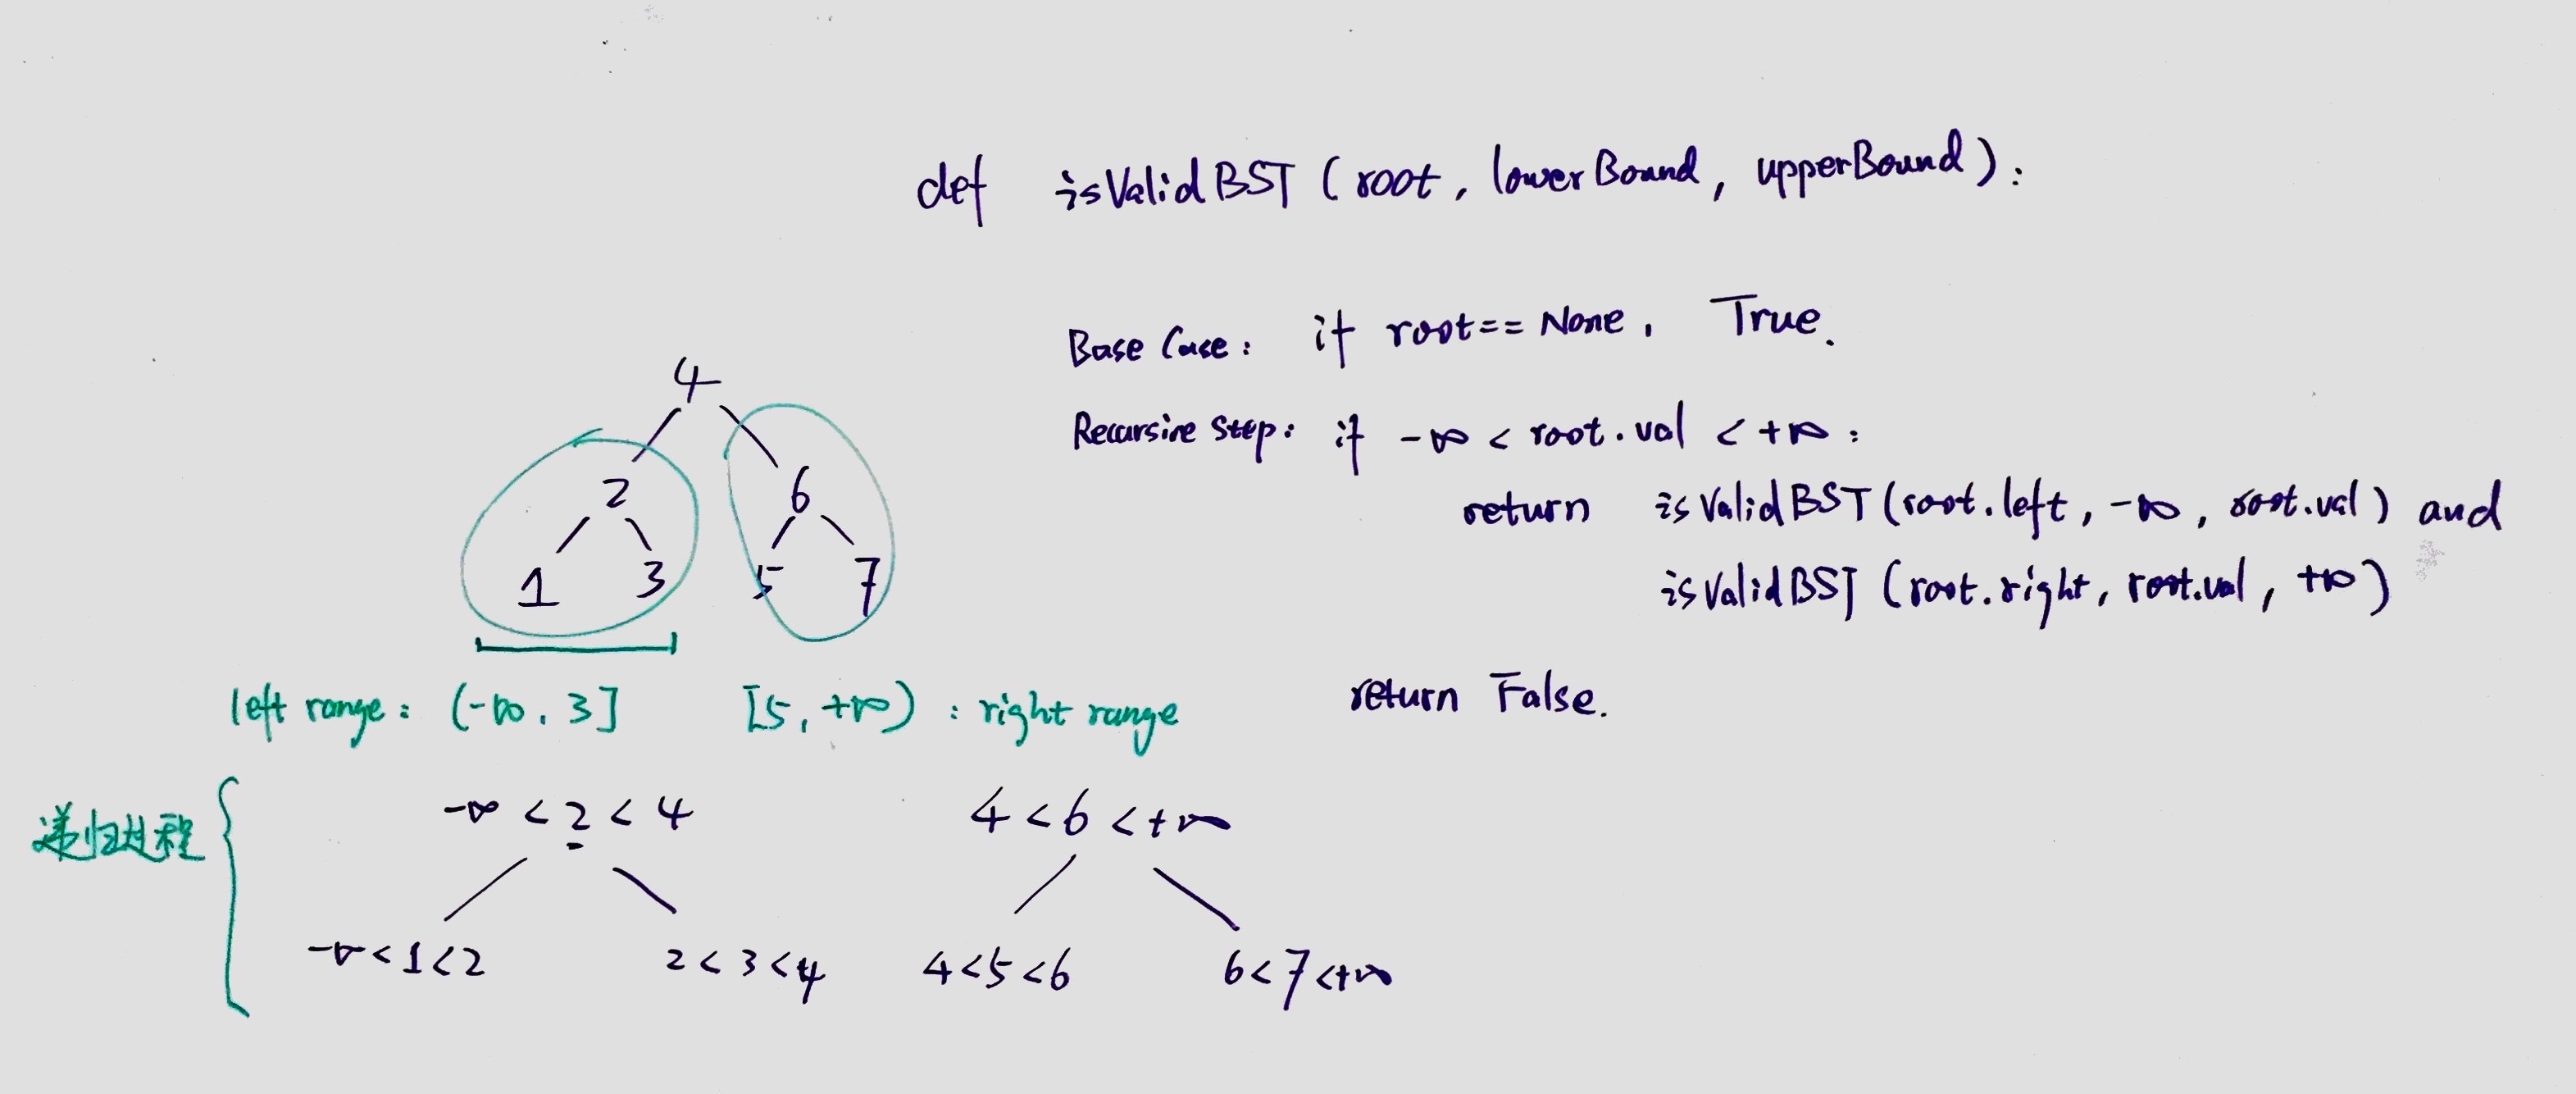 def isValidBST (root, lowerBound, upperBound):
Base Case: if root== None, True.
Recursive Step: if -∞ < root.val < +∞:
return isValidBST (root.left, -∞, root.val) and
isValidBST (root.right, root.val, +∞)
return False.
4
2 6
1 3 5 7
left range: (-∞, 3] [5, +∞) : right range
递归过程
-∞ < 2 < 4 4 < 6 < +∞
-∞ < 1 < 2 2 < 3 < 4 4 < 5 < 6 6 < 7 < +∞